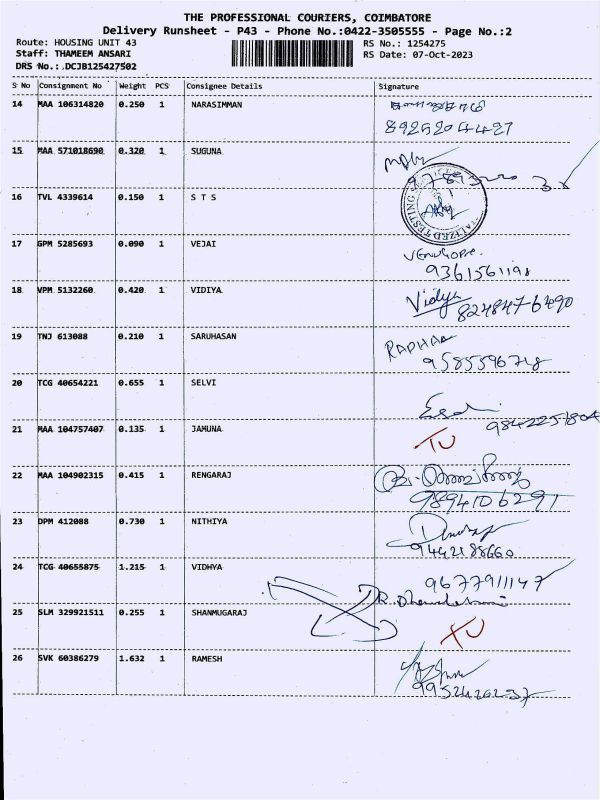 THE PROFESSIONAL COURIERS, COIMBATORE
Delivery Runsheet - P43 - Phone No.:0422-3505555 - Page No.:2
Route: HOUSING UNIT 43 RS No.: 1254275
Staff: THAMEEM ANSARI RS Date: 07-Oct-2023
DRS No.: .DCJB125427502
S No Consignment No Weight PCS Consignee Details Signature
14 MAA 106314820 0.250 1 NARASIMMAN
8925204427
15 MAA 571018690 0.320 1 SUGUNA
16 TVL 4339614 0.150 1 S T S
17 GPM 5285693 0.090 1 VEJAI
9361561198
18 VPM 5132260 0.420 1 VIDIYA Vidya
8248476490
19 TNJ 613088 0.210 1 SARUHASAN RADHAA
9585596718
20 TCG 40654221 0.655 1 SELVI
9842251804
21 MAA 104757407 0.135 1 JAMUNA TU
22 MAA 104902315 0.415 1 RENGARAJ
9894106291
23 DPM 412088 0.730 1 NITHIYA
9442188660
24 TCG 40655875 1.215 1 VIDHYA 9677911147
25 SLM 329921511 0.255 1 SHANMUGARAJ
26 SVK 60386279 1.632 1 RAMESH
9952426237